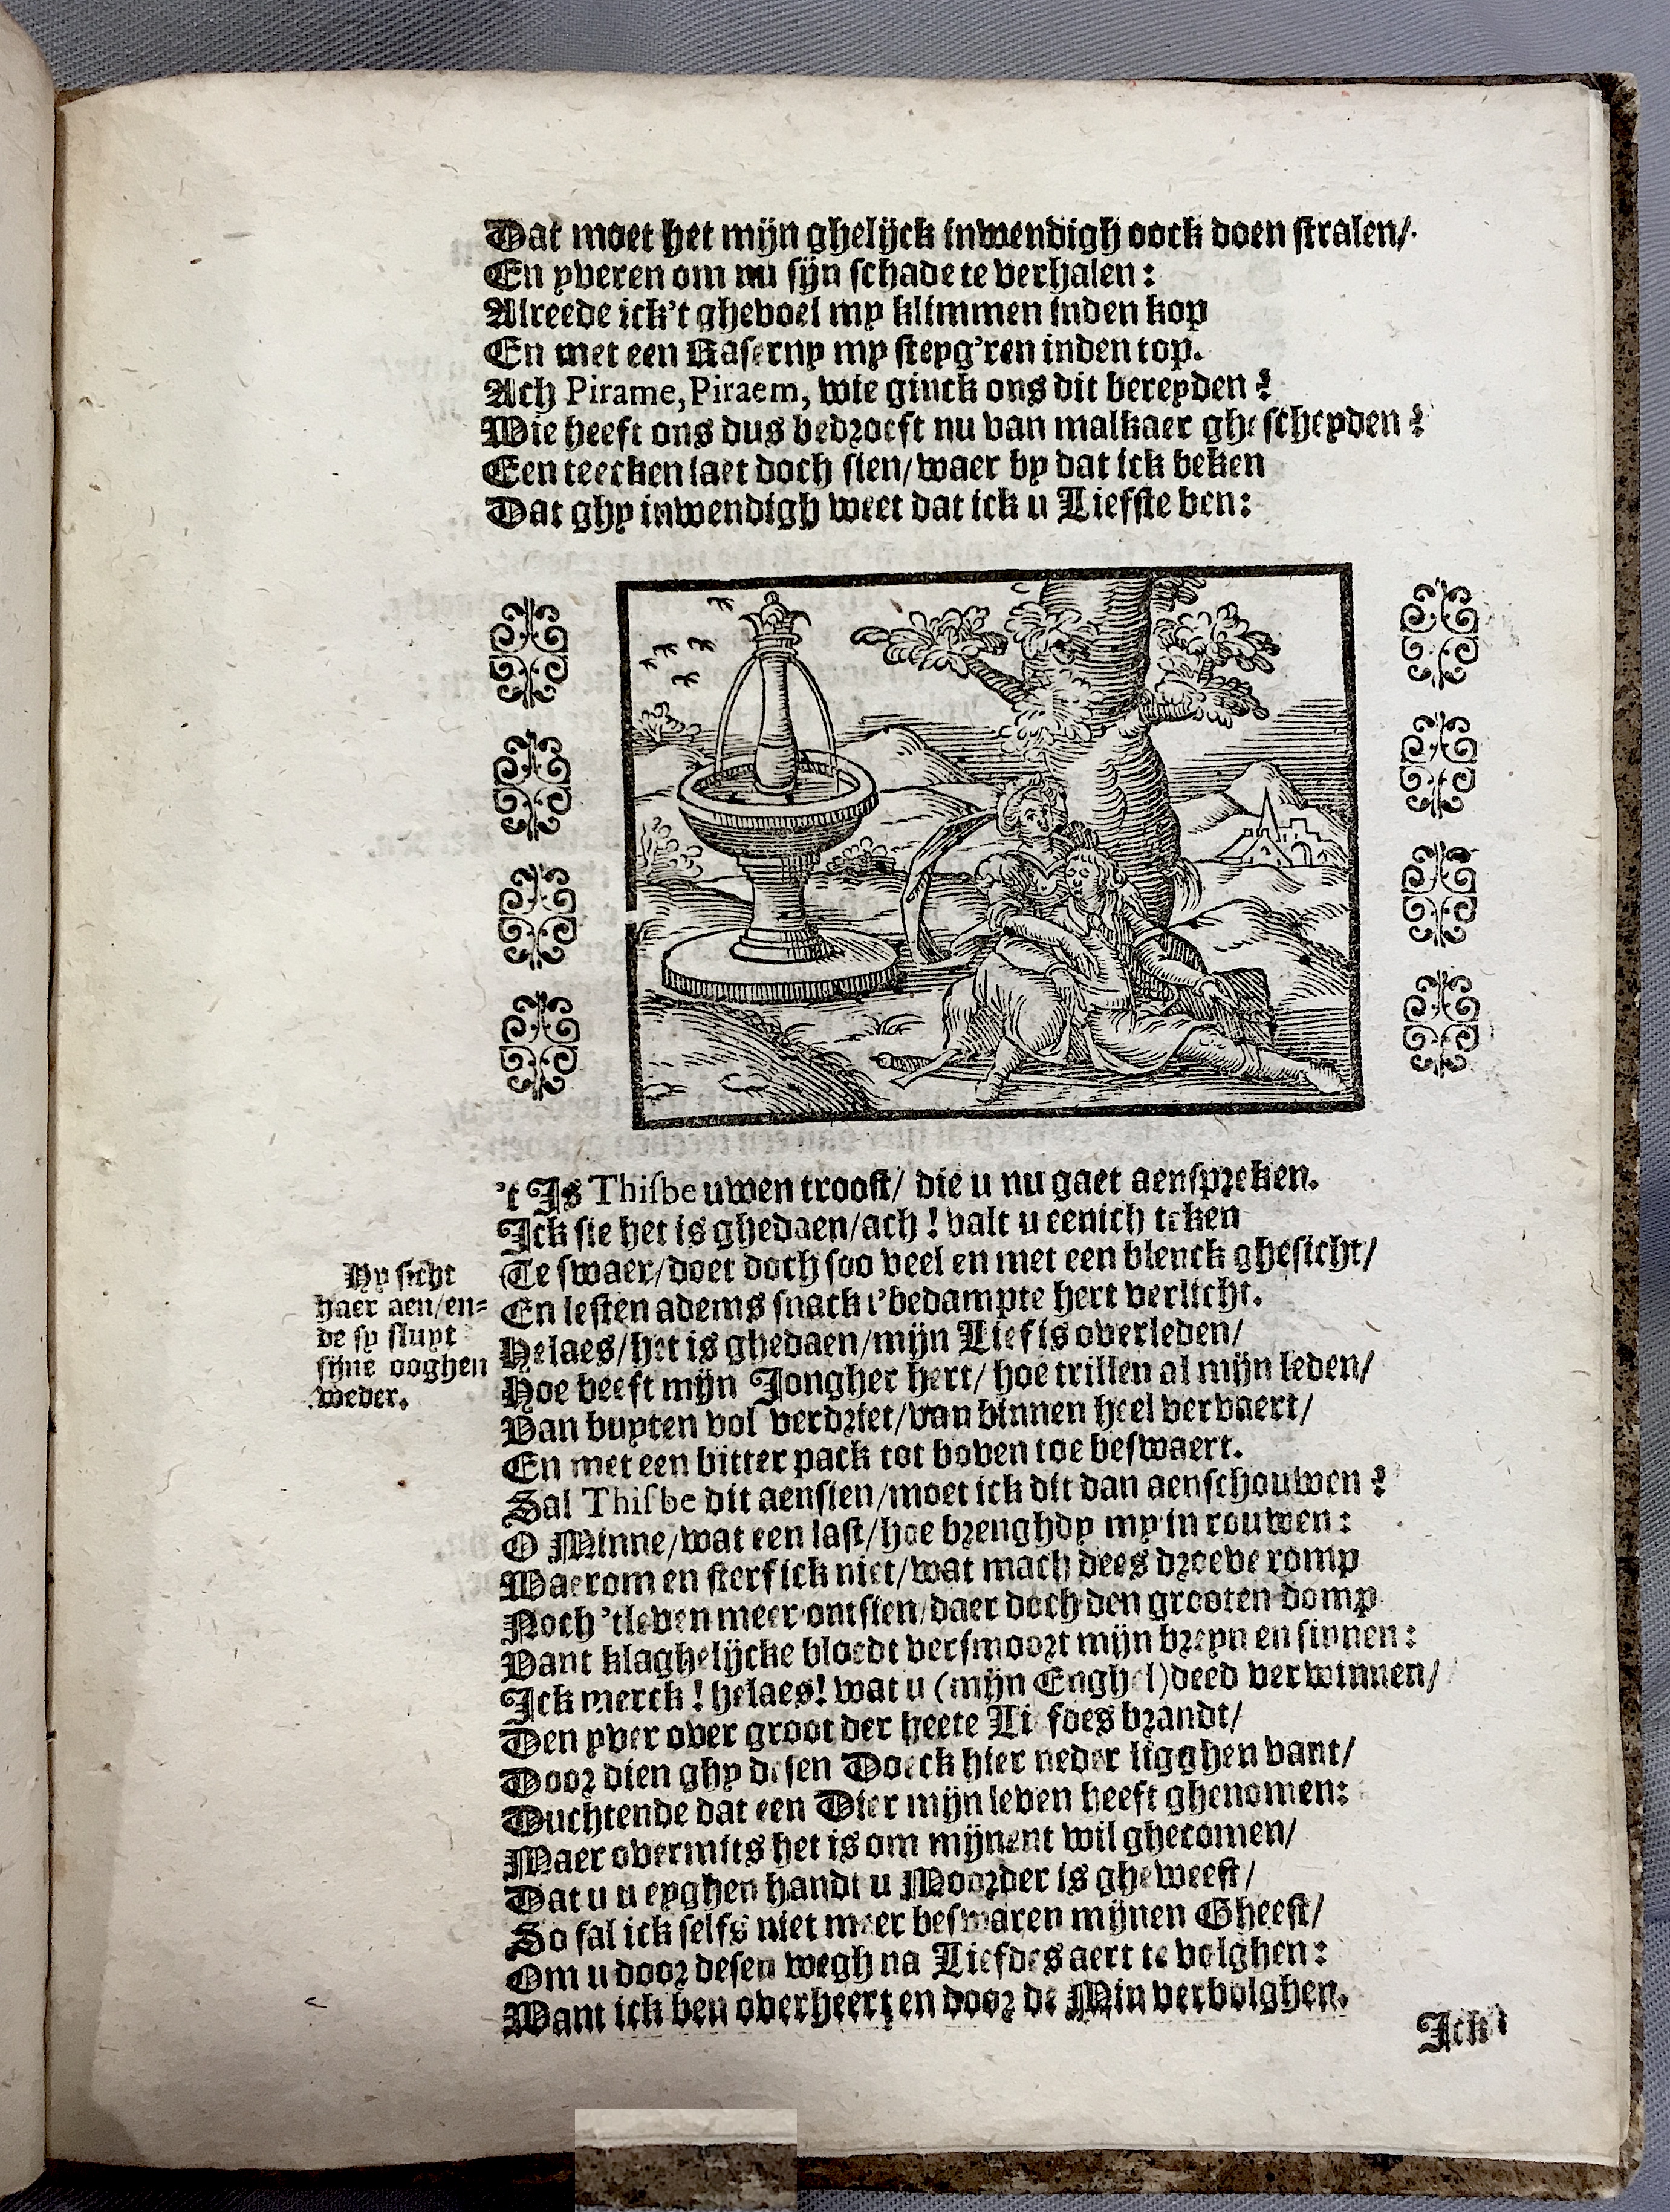 Dat moet het mijn ghelijck inwendigh oock doen stralen/
En yveren om nu sijn schade te verhalen:
Alreede ick't ghevoel my klimmen inden kop
En met een Raserny my steyg'ren inden top.
Ach Pirame, Piraem, wie ginck ons dit bereyden?
Wie heeft ons dus bedroeft nu van malkaer ghescheyden?
Een teecken laet doch sien/ waer by dat ick beken
Dat ghy inwendigh weet dat ick u Liefste ben:
't Is Thisbe uwen troost/ die u nu gaet aenspreken.
Ick sie het is ghedaen/ ach! valt u eenich teken
Te swaer/ doet doch soo veel en met een blenck ghesicht/
En lesten adems snack t'bedampte hert verlicht.
Hy sicht
haer aen/ en-
de sy sluyt
sijne ooghen
weder.
Helaes/ het is ghedaen/ mijn Lief is overleden/
Hoe beeft mijn Jongher hert/ hoe trillen al mijn leden/
Van buyten vol verdriet/ van binnen heel vervaert/
En met een bitter pack tot boven toe beswaert.
Sal Thisbe dit aensien/ moet ick dit dan aenschouwen?
O Minne/ wat een last/ hoe brenghdy my in rouwen:
Waerom en sterf ick niet/ wat mach dees droeve romp
Noch 'tleven meer ontsien/ daer doch den grooten domp
Vant klaghelijcke bloedt versmoort mijn breyn en sinnen:
Ick merck! helaes! wat u (mijn Enghel) deed verwinnen/
Den yver over groot der heete Liefdes brandt/
Door dien ghy desen Doeck hier neder ligghen vant/
Duchtende dat een Dier mijn leven heeft ghenomen:
Maer overmits het is om mijnent wil ghecomen/
Dat u u eyghen handt u Moorder is gheweest/
So sal ick selfs niet meer beswaren mijnen Gheest/
Om u door desen wegh na Liefdes aert te volghen:
Want ick ben overheert en door de Min verbolghen.
Ick